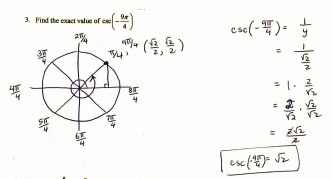 3. Find the exact value of csc(-9π/4)
2π/4
3π/4
π/4, 9π/4 (√2/2, √2/2)
4π/4
8π/4
5π/4
7π/4
6π/4
csc(-9π/4) = 1/y
= 1/(√2/2)
= 1 · 2/√2
= 2/√2 · √2/√2
= 2√2/2
csc(-9π/4) = √2